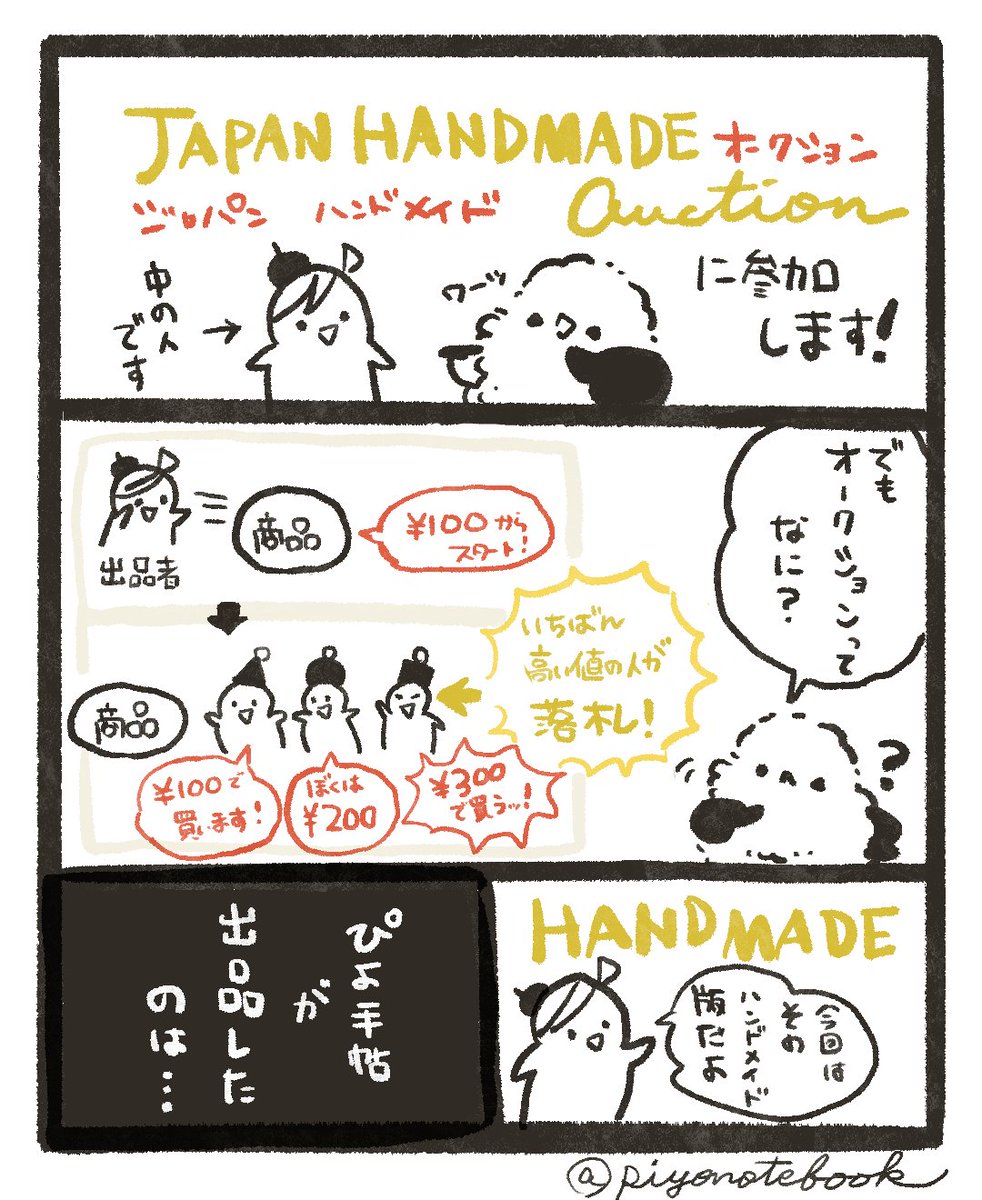 JAPAN HANDMADE
オークション
ジャパン ハンドメイド
Auction
に参加
します!
ワーッ
中の人
です
→
でも
オークションって
なに?
出品者
商品
¥100から
スタート!
いちばん
高い値の人が
落札!
商品
¥100で
買います!
ぼくは
¥200
¥300
で買うッ!
?
HANDMADE
今回は
その
ハンドメイド
版だよ
ぴよ手帖
が
出品した
のは…
@piyonotebook